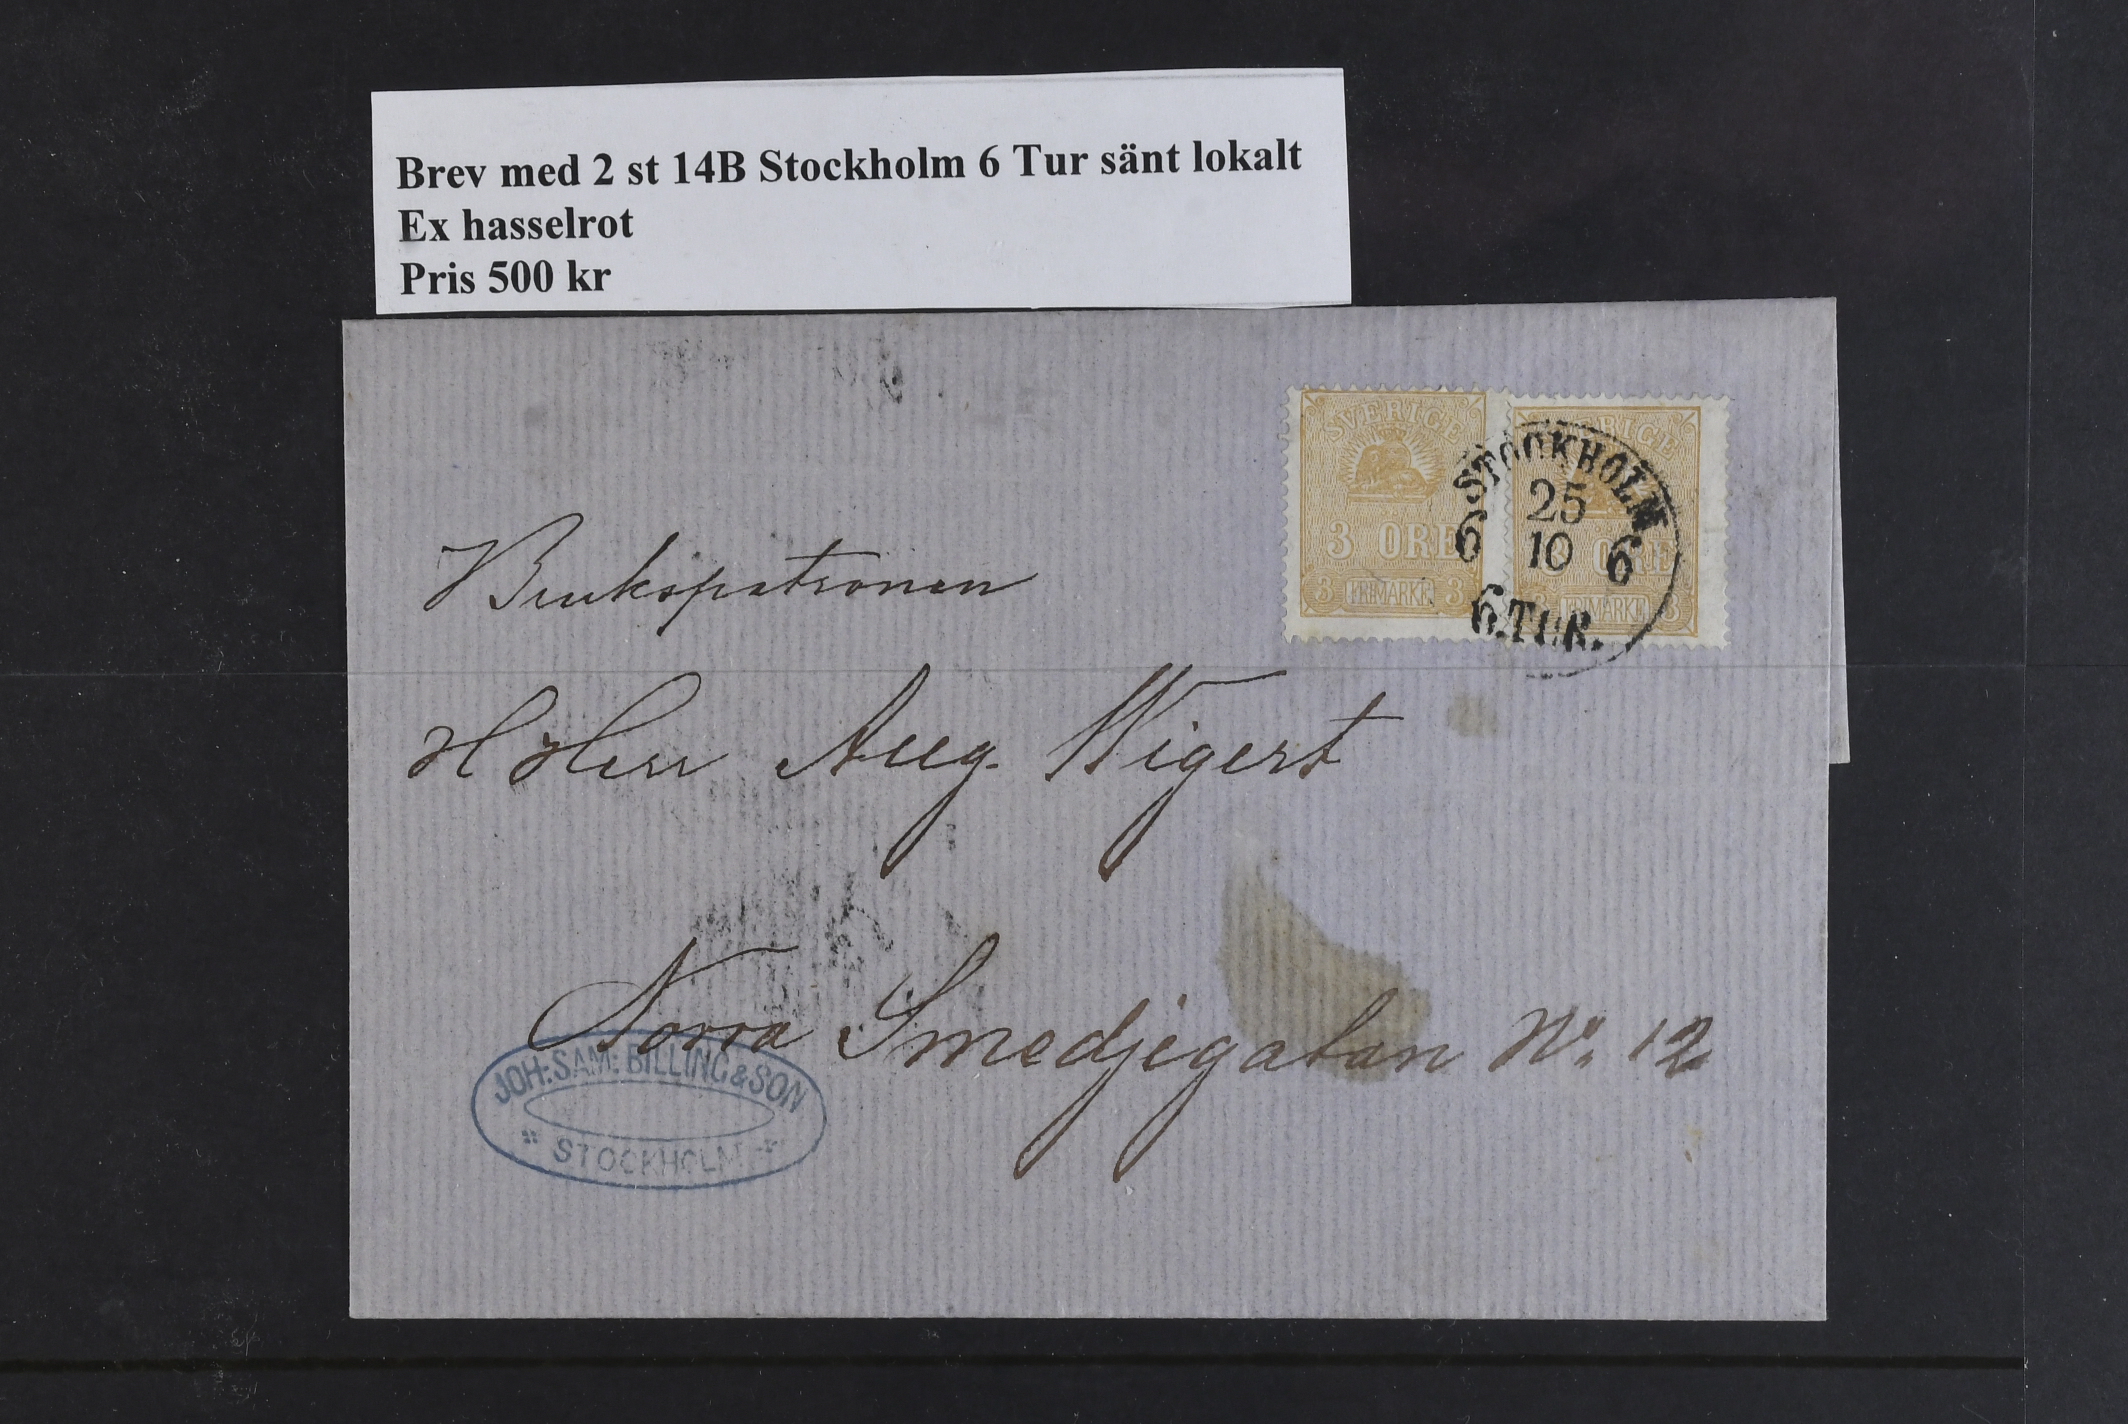 Brev med 2 st 14B Stockholm 6 Tur sänt lokalt
Ex hasselrot
Pris 500 kr
SVERIGE
3 ÖRE
3 FRIMÄRKE 3
SVERIGE
3 ÖRE
3 FRIMÄRKE 3
STOCKHOLM
25
6 10 6
6.TUR.
Brukspatronen
H Herr Aug. Wigert
Norra Smedjegatan No 12
JOH: SAM: BILLING & SON
STOCKHOLM